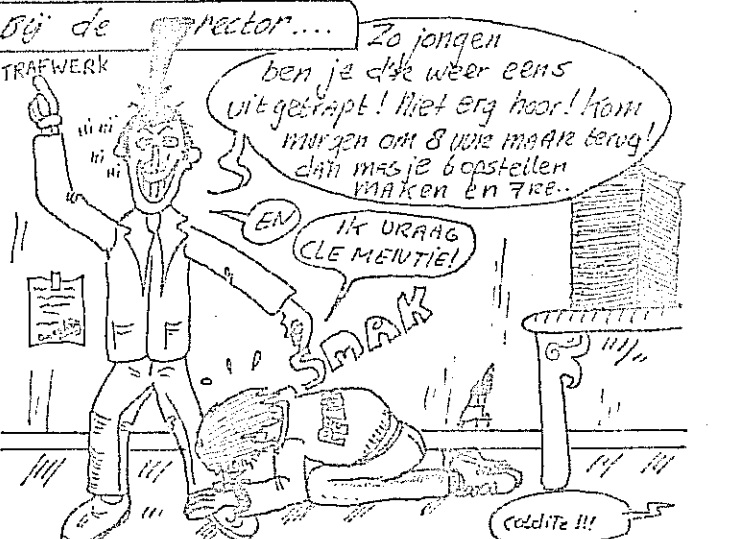 Bij de rector....
TRAFWERK
Zo jongen
ben je d'r weer eens
uitgetrapt! Niet erg hoor! Kom
morgen om 8 uur maar terug!
dan mag je 6 opstellen
maken en 7 re..
hi hi
hi
hi
EN
IK VRAAG
CLEMENTIE!
SMAK
COLDITZ !!!